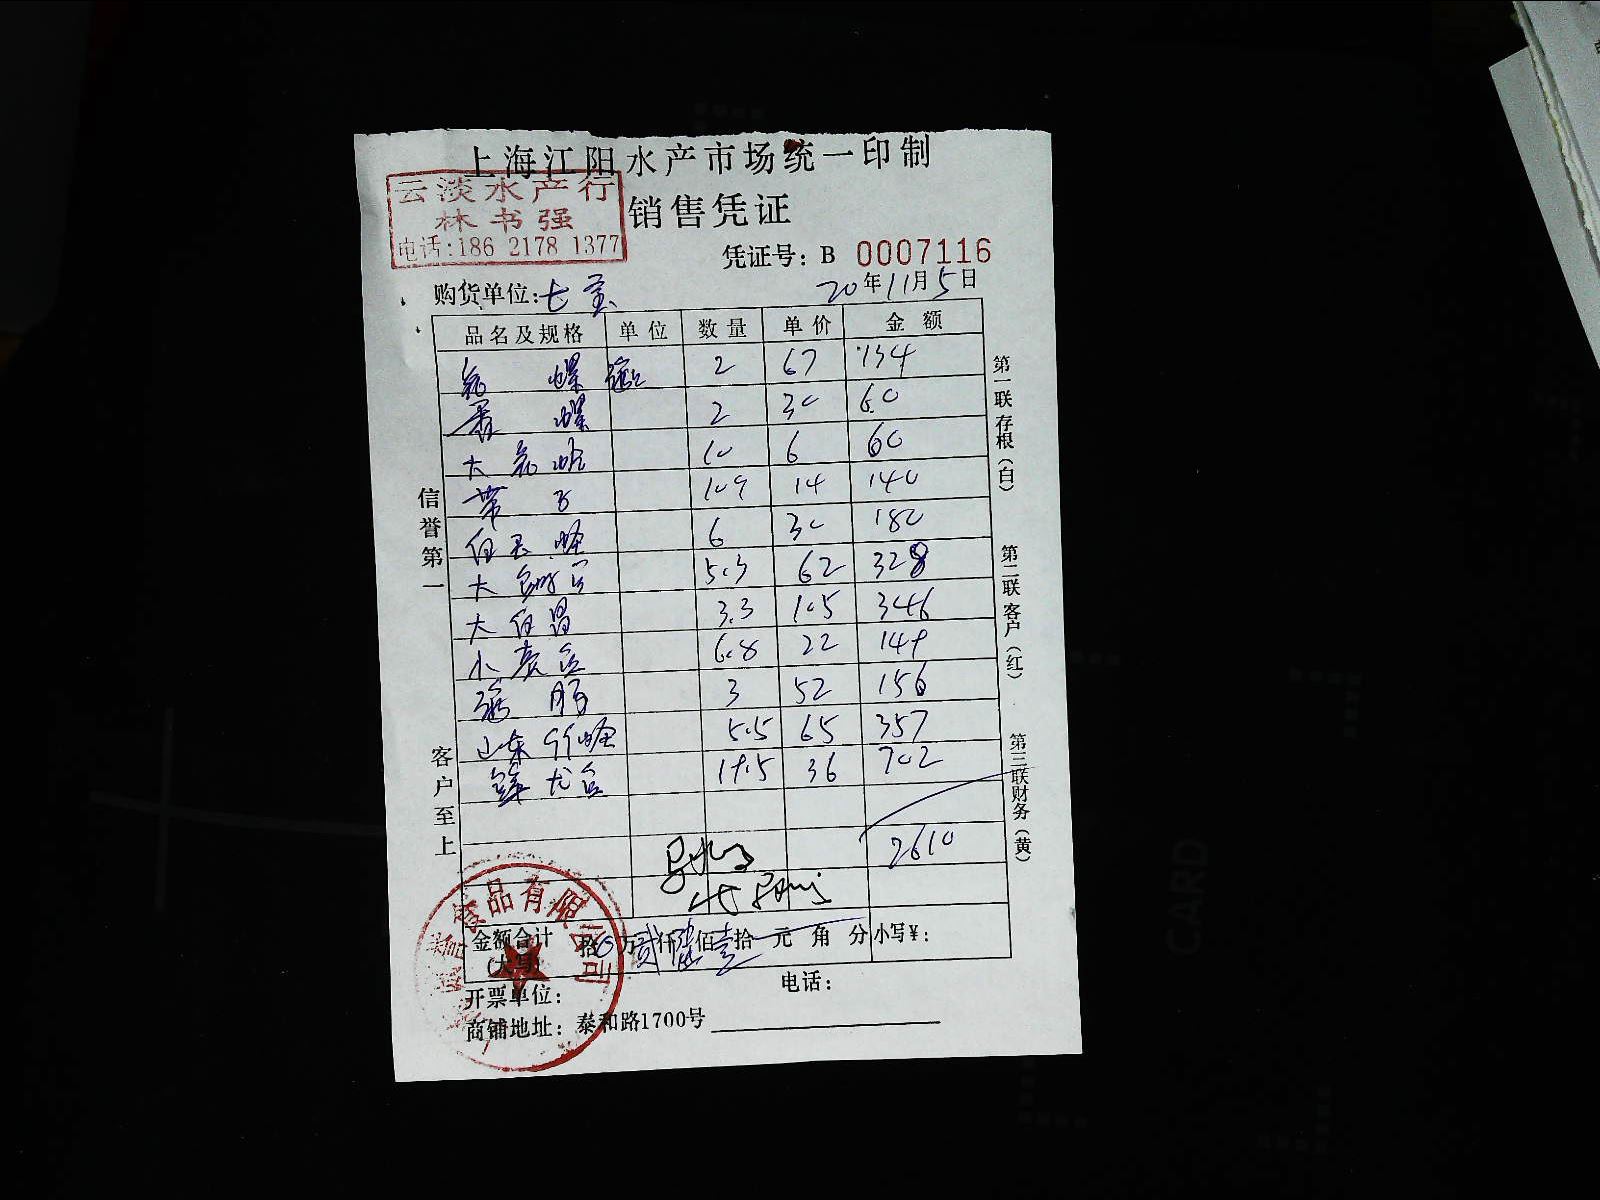 上海江阳水产市场统一印制
云淡水产行
林书强
电话:186 2178 1377
销售凭证
凭证号: B 0007116
购货单位: 七宝
20年11月5日
品名及规格 单位 数量 单价 金额
螺 2 67 134
香螺 2 30 60
大 10 6 60
带子 10.9 14 140
6 30 180
大 5.3 62 328
大白昌 3.3 105 346
小 6.8 22 149
3 52 156
山东 5.5 65 357
19.5 36 702
2610
金额合计(大写) 拾 万贰仟陆佰壹拾 元 角 分 小写¥:
开票单位:
电话:
商铺地址: 泰和路1700号
信誉第一
客户至上
第一联存根(白)
第二联客户(红)
第三联财务(黄)
食品有限公司